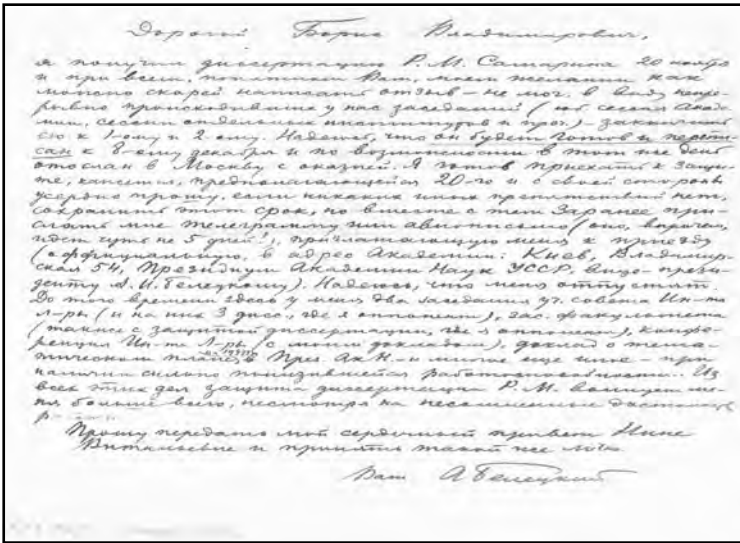 Дорогой Борис Владимирович,
я получил диссертацию Р. М. Самарина 20 ноября
и при всем, понятном Вам, моем желании как
можно скорей написать отзыв – не мог. в виду непре-
рывно происходивших у нас заседаний (юб. сессия Акаде-
мии, сессии отдельных институтов и проч.) – закончить
его к 1-ому и 2-ому. Надеюсь, что он будет готов и перепи-
сан к 8-ому декабря и по возможности в тот же день
отослан в Москву с оказией. Я готов приехать к защи-
те, кажется, предполагающейся 20-го и с своей стороны
усердно прошу, если никаких иных препятствий нет,
сохранить этот срок, но вместе с тем заранее при-
слать мне телеграмму или авиописьмо (оно, впрочем,
идет чуть не 5 дней!), приглашающую меня к приезду
(оффициальную, в адрес Академии: Киев, Владимир-
ская 54, Президиум Академии Наук УССР, вице-прези-
денту А. И. Белецкому). Надеюсь, что меня отпустят.
До того времени здесь у меня два заседания уч. совета Ин-та
Л-ры (и на них 3 дисс., где я оппонент), зас. факультета
(также с защитой диссертации, где я оппонент), конфе-
ренция Ин-та Л-ры (с моим докладом), доклад о тема-
тическом плане в През. Ак. Н. – и многое еще иное при
наличии сильно понизившейся работоспособности. Из
всех этих дел защита диссертации Р. М. волнует ме-
ня больше всего, несмотря на несомненные достоинства
Прошу передать мой сердечный привет Нине
Витальевне и принять такой же
Ваш А Белецкий